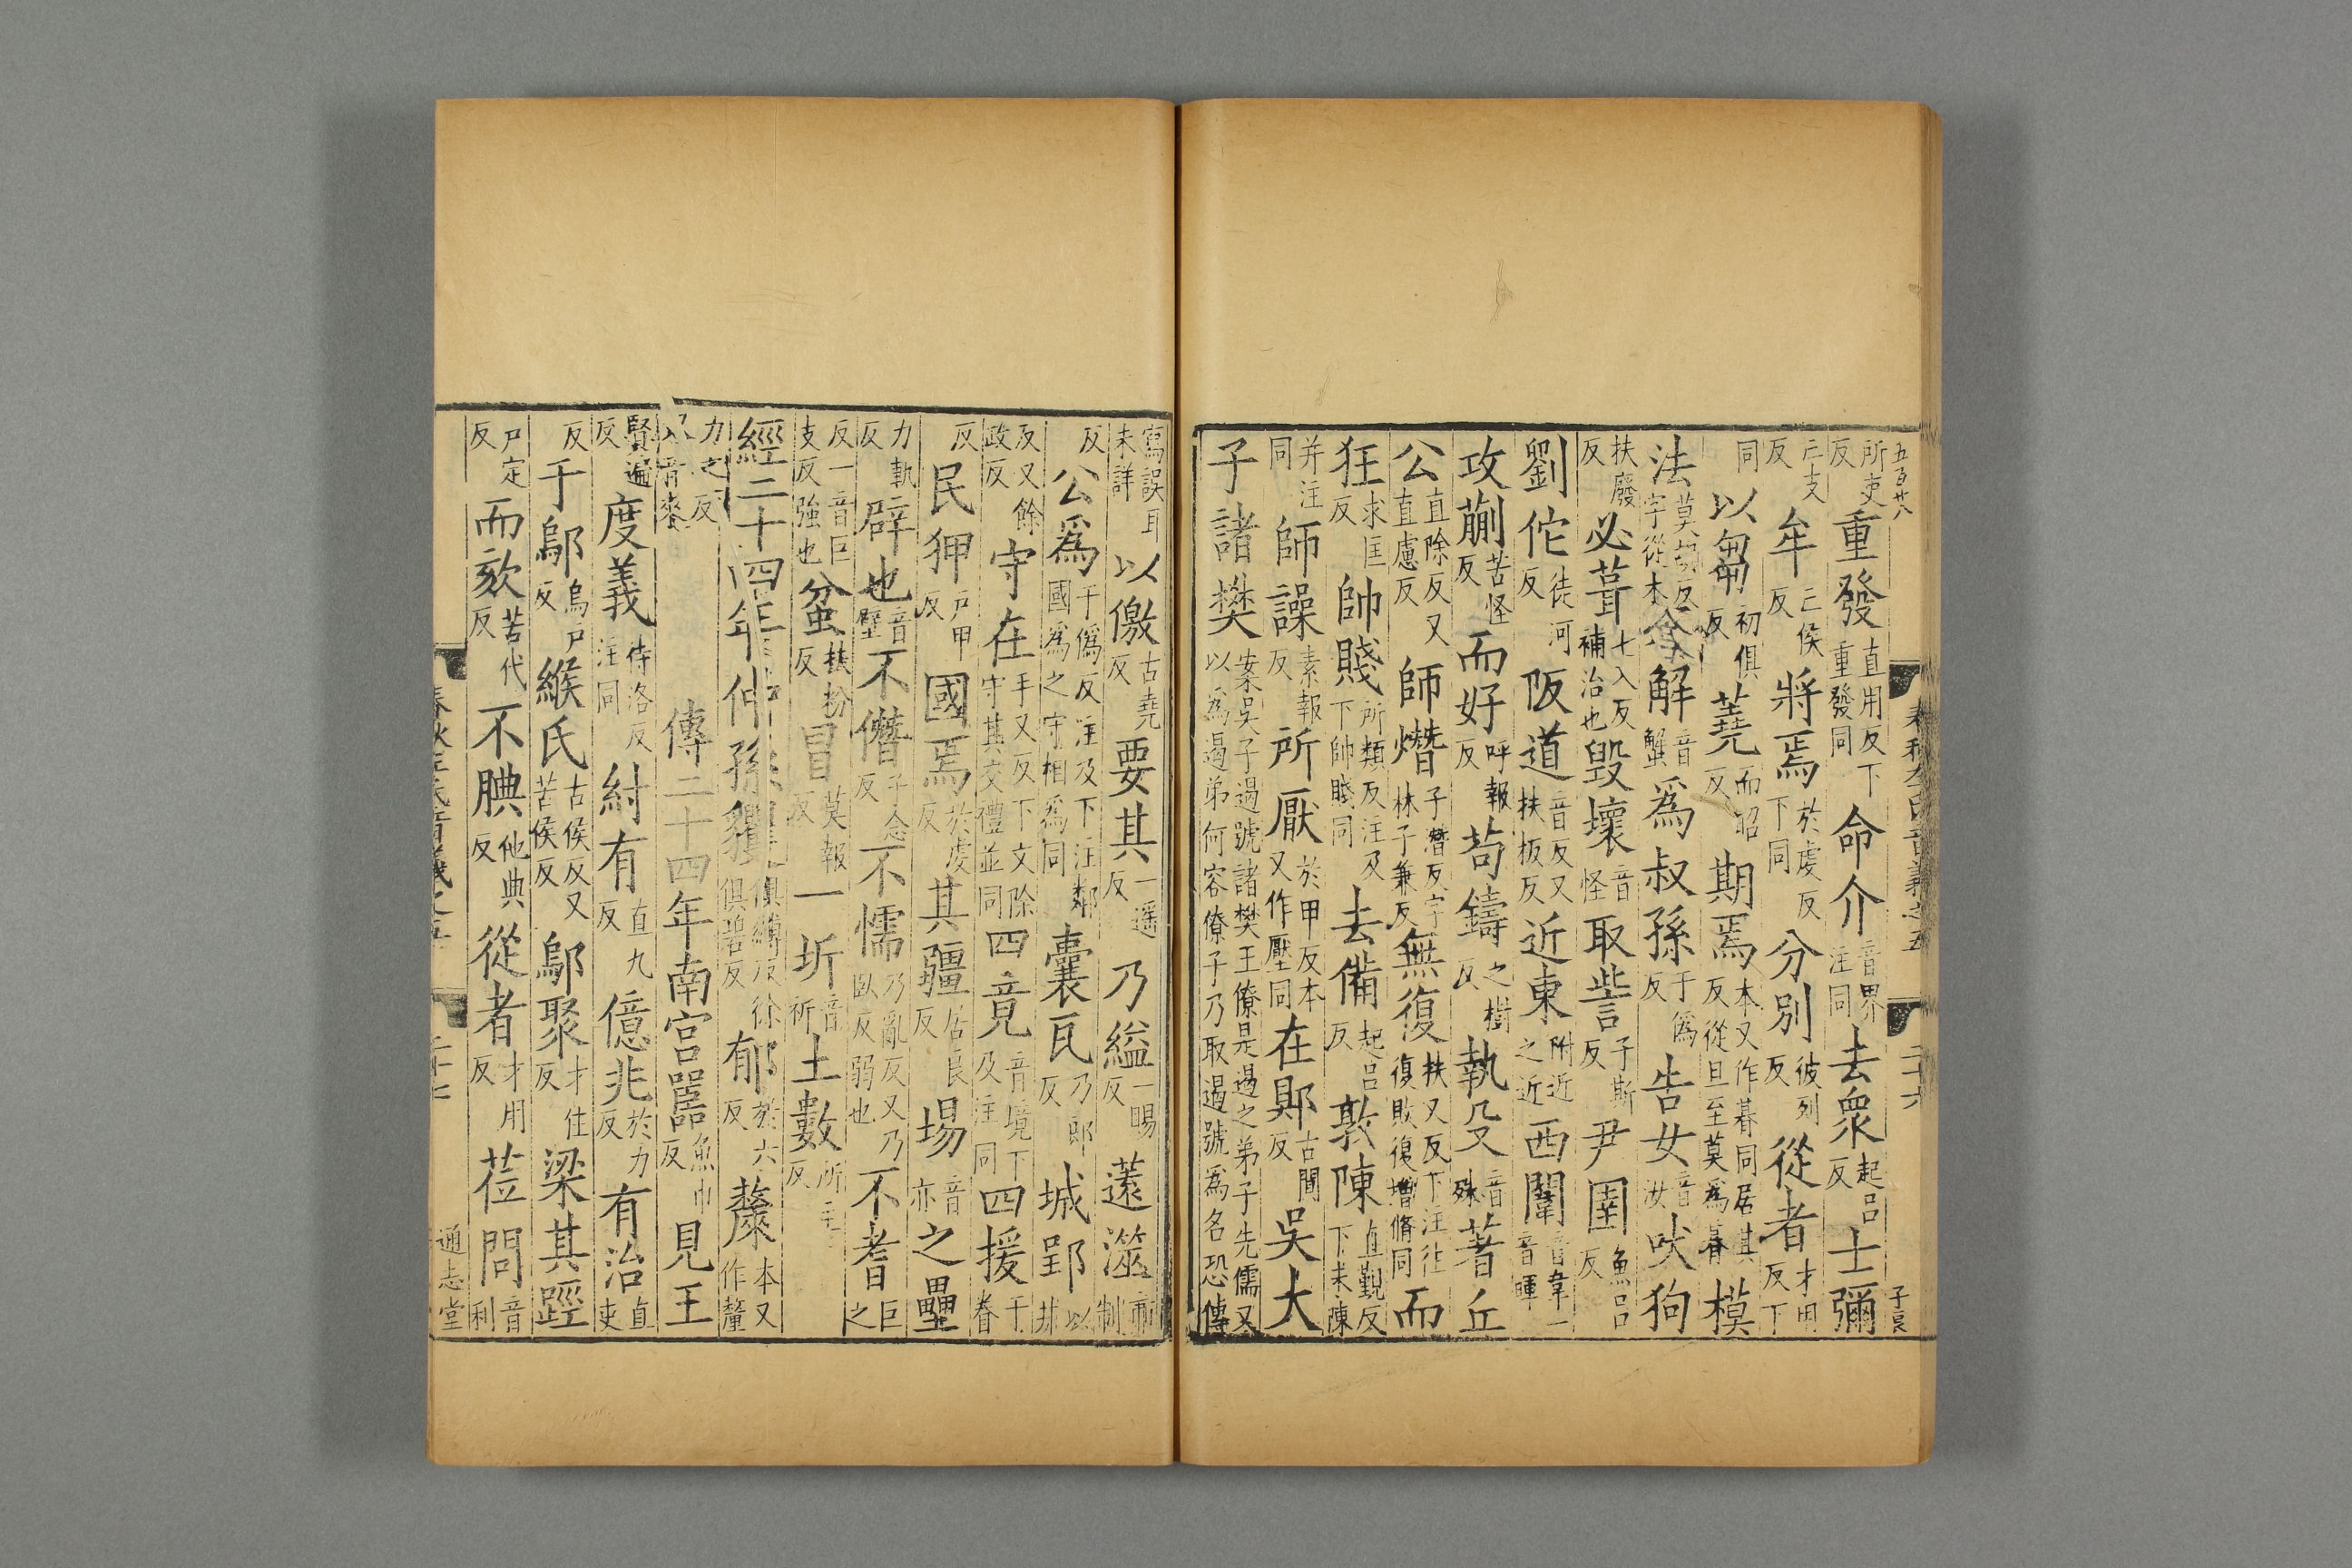 五百廿八 春秋左氏音義之五 二十六
所吏反重發直用反下重發同命介音界注同去衆起呂反士彌
亡支反牟亡侯反將焉於虔反下同分別彼列反從者才用反下
同以芻初俱反蕘而昭反期焉本又作朞同居其反從旦至莫爲朞模
法莫胡反字從木解音蟹爲叔孫于僞反告女音汝吠狗
扶廢反必葺七入反補治也毁壞音怪取訾子斯反尹圉魚呂反
劉佗徒河反阪道音反又扶板反近東附近之近西闈音韋一音暉
攻蒯苦怪反而好呼報反苟鑄之樹反執殳音殊著丘
公直除反又直慮反師熸子潛反字林子兼反無復扶又反下注往復敗復增脩同而
狂求匡反帥賤所類反注及下帥賤同去備起呂反敦陳直覲反下未陳
并注同師譟素報反所厭於甲反本又作壓同在郹古闃反吳大
子諸樊案吳子遏號諸樊王僚是遏之弟子先儒又以爲遏弟何容僚子乃取遏號爲名恐傳
寫誤耳未詳以儌古堯反要其一遥反乃縊一賜反薳澨市制
反公爲于僞反注及下注鄰國爲之守相爲同囊瓦乃郎反城郢以井
反又餘政反守在手又反下文除守其交禮並同四竟音境下及注同四援于眷
反民狎戶甲反國焉於虔反其疆居良反場音亦之壘
力軌反辟也音壁不僭子念反不懦乃亂反又乃臥反弱也不耆巨之
反一音巨支反強也蚠扶粉反冒莫報反一圻音祈土數所主反
經二十四年仲孫貜俱縛反徐俱碧反郁於六反釐本又作釐
力之反又音來傳二十四年南宮嚚魚巾反見王
賢遍反度義待洛反注同紂有直九反億兆於力反有治直吏
反于鄔烏戶反緱氏古侯反又苦侯反鄔聚才住反梁其踁
戶定反而欬苦代反不腆他典反從者才用反莅問音利
二十七 通志堂